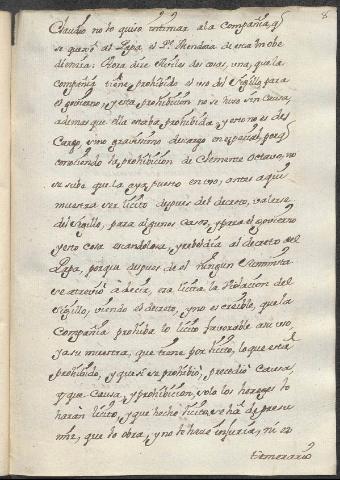 8
Claudio no lo quiso intimar a la Compañia, q̃
se quexò al Papa el Pe. Mendoza de esta inobe
diencia: Ahora dice Aviles dos cosas, una, que la
compañia tiene prohibido el uso del Sigillo para
el govierno, y esta prohibicion no se hizo sin Causa,
ademas que ella estaba prohibida, y esto no es des
Cargo, sino gravissimo descargo en especial, porq̃
conociendo la prohibicion de Clemente Octavo, no
se sabe que la aya puesto en uso, antes aqui
muestra ser licito despues del decreto, valerse
del Sigillo, para algunos casos, y para el govierno
y esto cosa escandolosa, y rebeldia al decreto del
Papa, porque despues de el ningun Summista
se atreviò à decir, era licita la Relacion del
Sigillo, viendo el decreto, y no es creible, que la
Compañia prohiba lo licito favorable a su uso,
y assi muestra, que tiene por licito, lo que està
prohibido, y que si se prohibio, precediò Causa,
y que Causa, y prohibicion, solo los hereges lo
haràn licito, y que hecho licito, se hà de presu
mir, que lo obra, y no le hace injuria, ni es
temerario